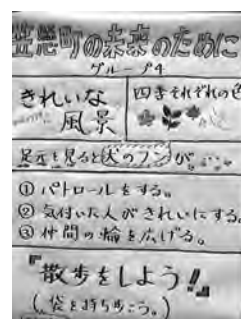 笠懸町の未来のために
グループ4
きれいな
風景
四季それぞれの色
足元を見ると犬のフンが…
① パトロールをする。
② 気付いた人がきれいにする。
③ 仲間の輪を広げる。
『散歩をしよう!!』
(袋を持ち歩こう。)